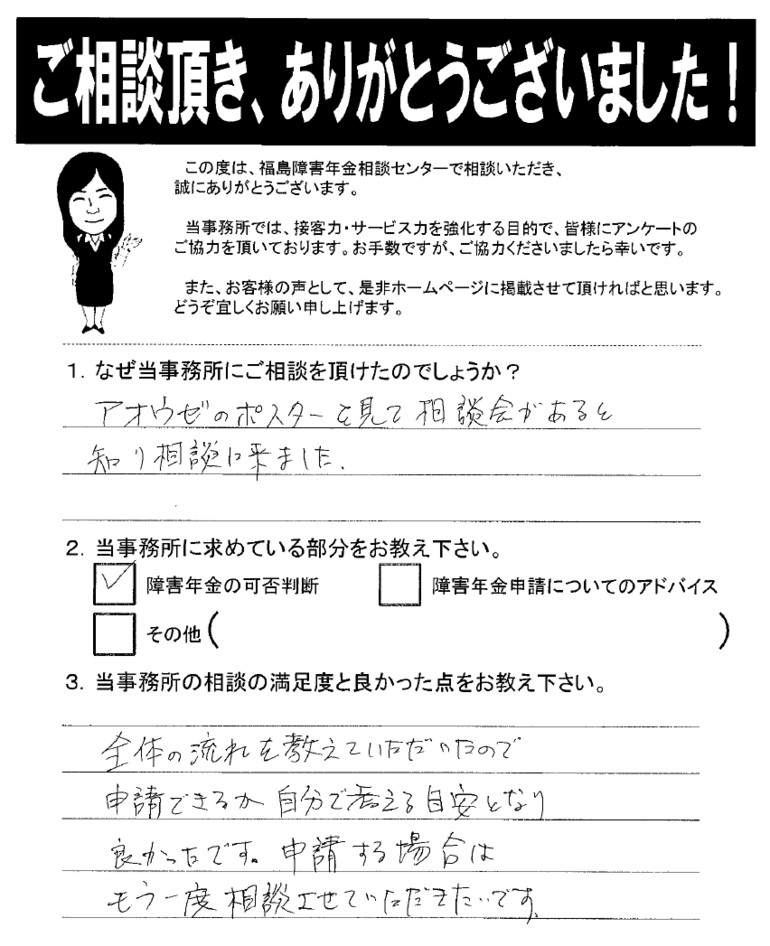 ご相談頂き、ありがとうございました！
この度は、福島障害年金相談センターで相談いただき、
誠にありがとうございます。
当事務所では、接客力・サービス力を強化する目的で、皆様にアンケートの
ご協力を頂いております。お手数ですが、ご協力くださいましたら幸いです。
また、お客様の声として、是非ホームページに掲載させて頂ければと思います。
どうぞ宜しくお願い申し上げます。
1. なぜ当事務所にご相談を頂けたのでしょうか？
アオウゼのポスターを見て相談会があると
知り相談に来ました.
2. 当事務所に求めている部分をお教え下さい。
障害年金の可否判断 障害年金申請についてのアドバイス
その他( )
3. 当事務所の相談の満足度と良かった点をお教え下さい。
全体の流れを教えていただいたので
申請できるか自分で考える目安となり
良かったです。申請する場合は
もう一度相談させていただきたいです.